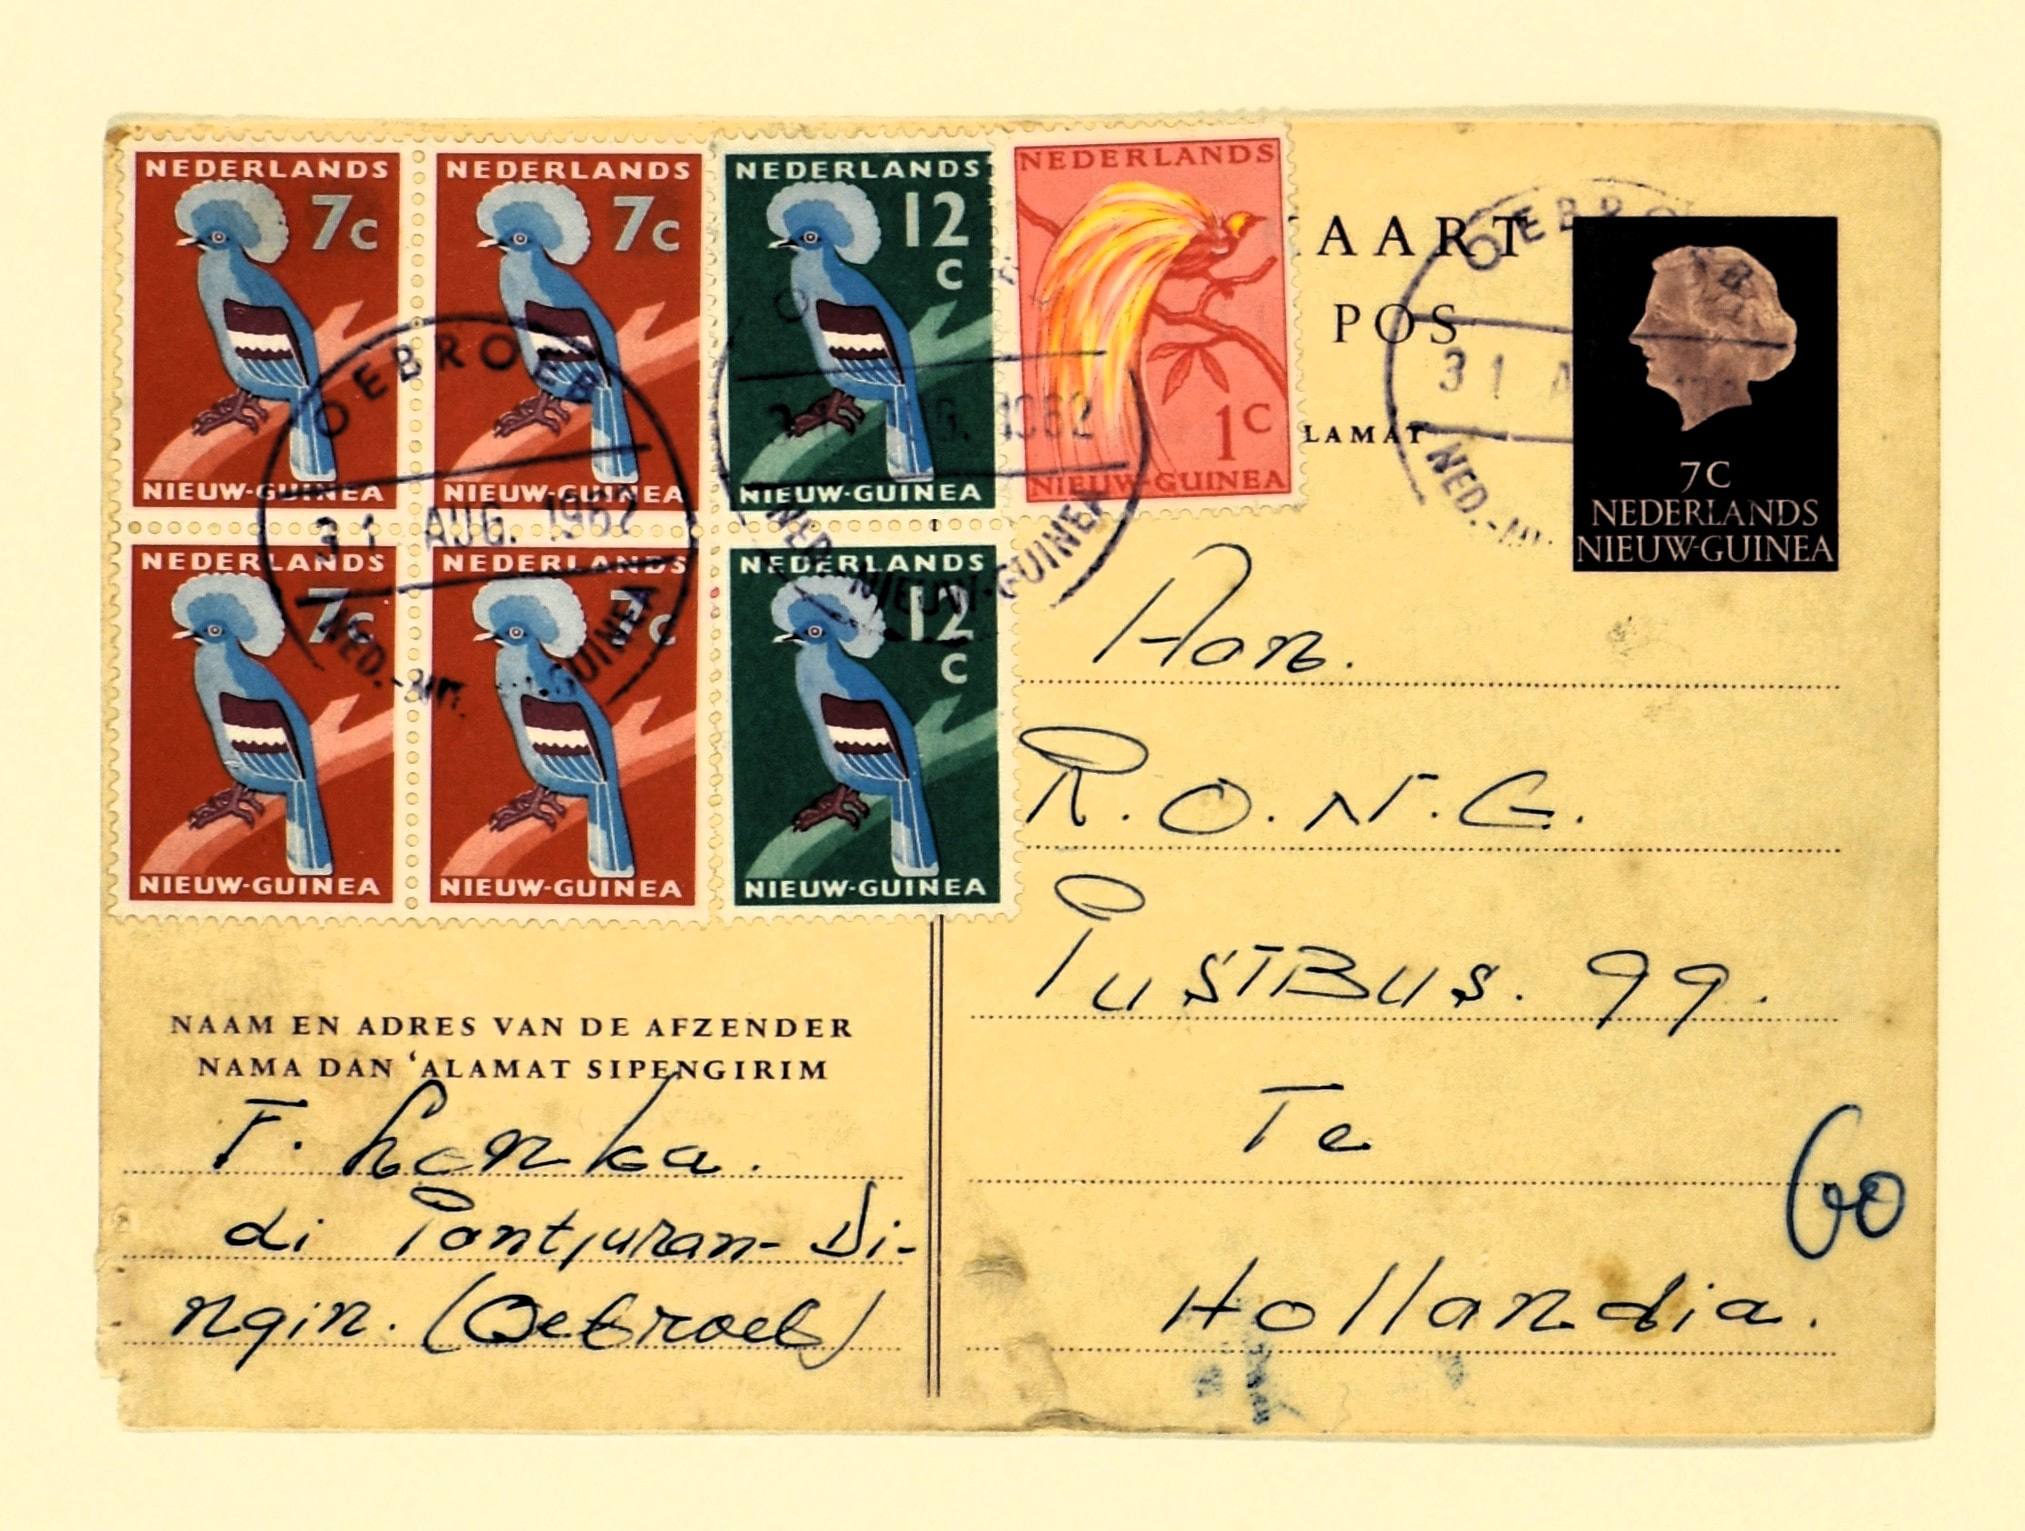 NEDERLANDS
7c
NIEUW-GUINEA
NEDERLANDS
7c
NIEUW-GUINEA
NEDERLANDS
12
c
NIEUW-GUINEA
NEDERLANDS
1c
NIEUW-GUINEA
AART
POS
LAMAT
7C
NEDERLANDS
NIEUW-GUINEA
OEBROEB
31 A
NED.-
NEDERLANDS
7c
NIEUW-GUINEA
NEDERLANDS
7c
NIEUW-GUINEA
NEDERLANDS
12
c
NIEUW-GUINEA
OEBROEB
31 AUG. 1962
NED.- GUINEA
AUG. 1962
NED.-NIEUW-GUINEA
Hon.
P.O.N.G.
PUSTBUS. 99.
Te
Hollandia.
60
NAAM EN ADRES VAN DE AFZENDER
NAMA DAN 'ALAMAT SIPENGIRIM
F. Lenka.
di Pantjuran-Di-
ngin. (Oebroeb)